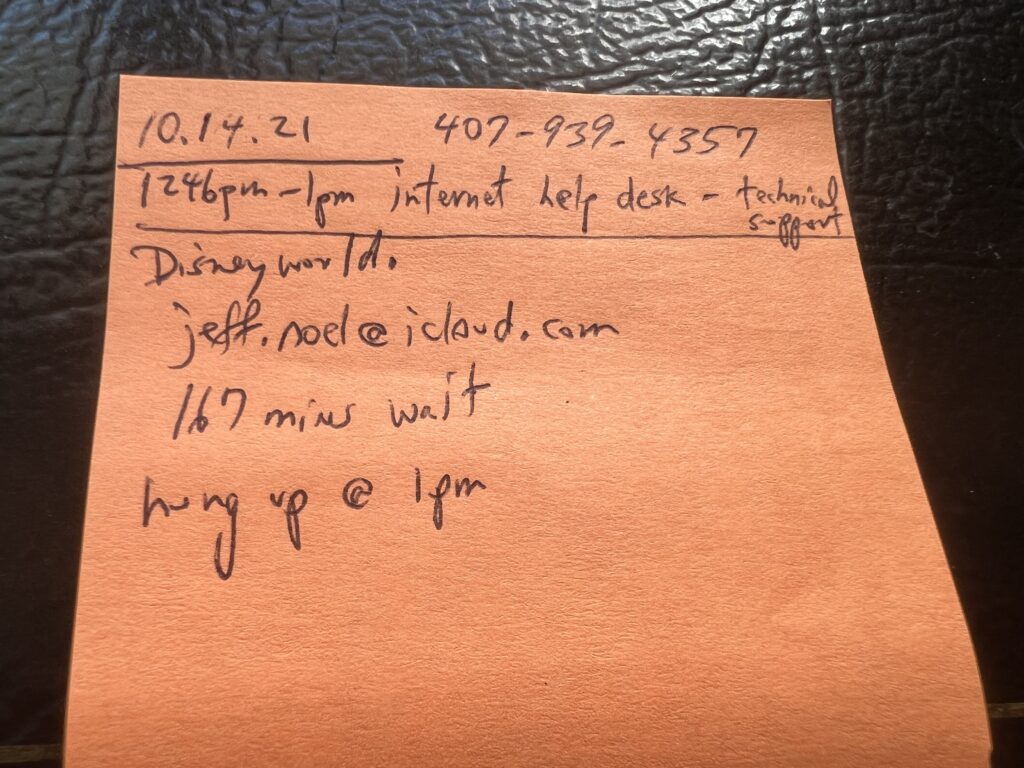 10.14.21 407-939-4357
1246pm-1pm internet help desk - technical support
Disneyworld.
jeff.noel@icloud.com
167 mins wait
hung up @ 1pm